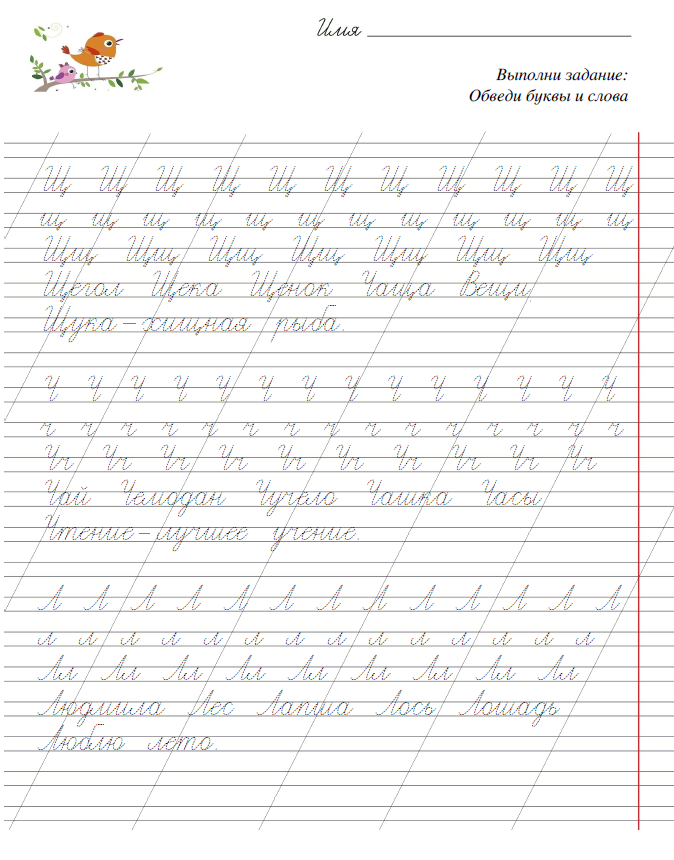 Имя
Выполни задание:
Обведи буквы и слова
Щ Щ Щ Щ Щ Щ Щ Щ Щ Щ Щ
щ щ щ щ щ щ щ щ щ щ щ щ
Щщ Щщ Щщ Щщ Щщ Щщ Щщ
Щегол Щека Щенок Чаща Вещи
Щука – хищная рыба.
Ч Ч Ч Ч Ч Ч Ч Ч Ч Ч Ч Ч Ч Ч
ч ч ч ч ч ч ч ч ч ч ч ч ч ч ч
Чч Чч Чч Чч Чч Чч Чч Чч Чч Чч
Чай Чемодан Чучело Чашка Часы
Чтение – лучшее учение.
Л Л Л Л Л Л Л Л Л Л Л Л Л
л л л л л л л л л л л л л л
Лл Лл Лл Лл Лл Лл Лл Лл Лл
Людмила Лес Лапша Лось Лошадь
Люблю лето.